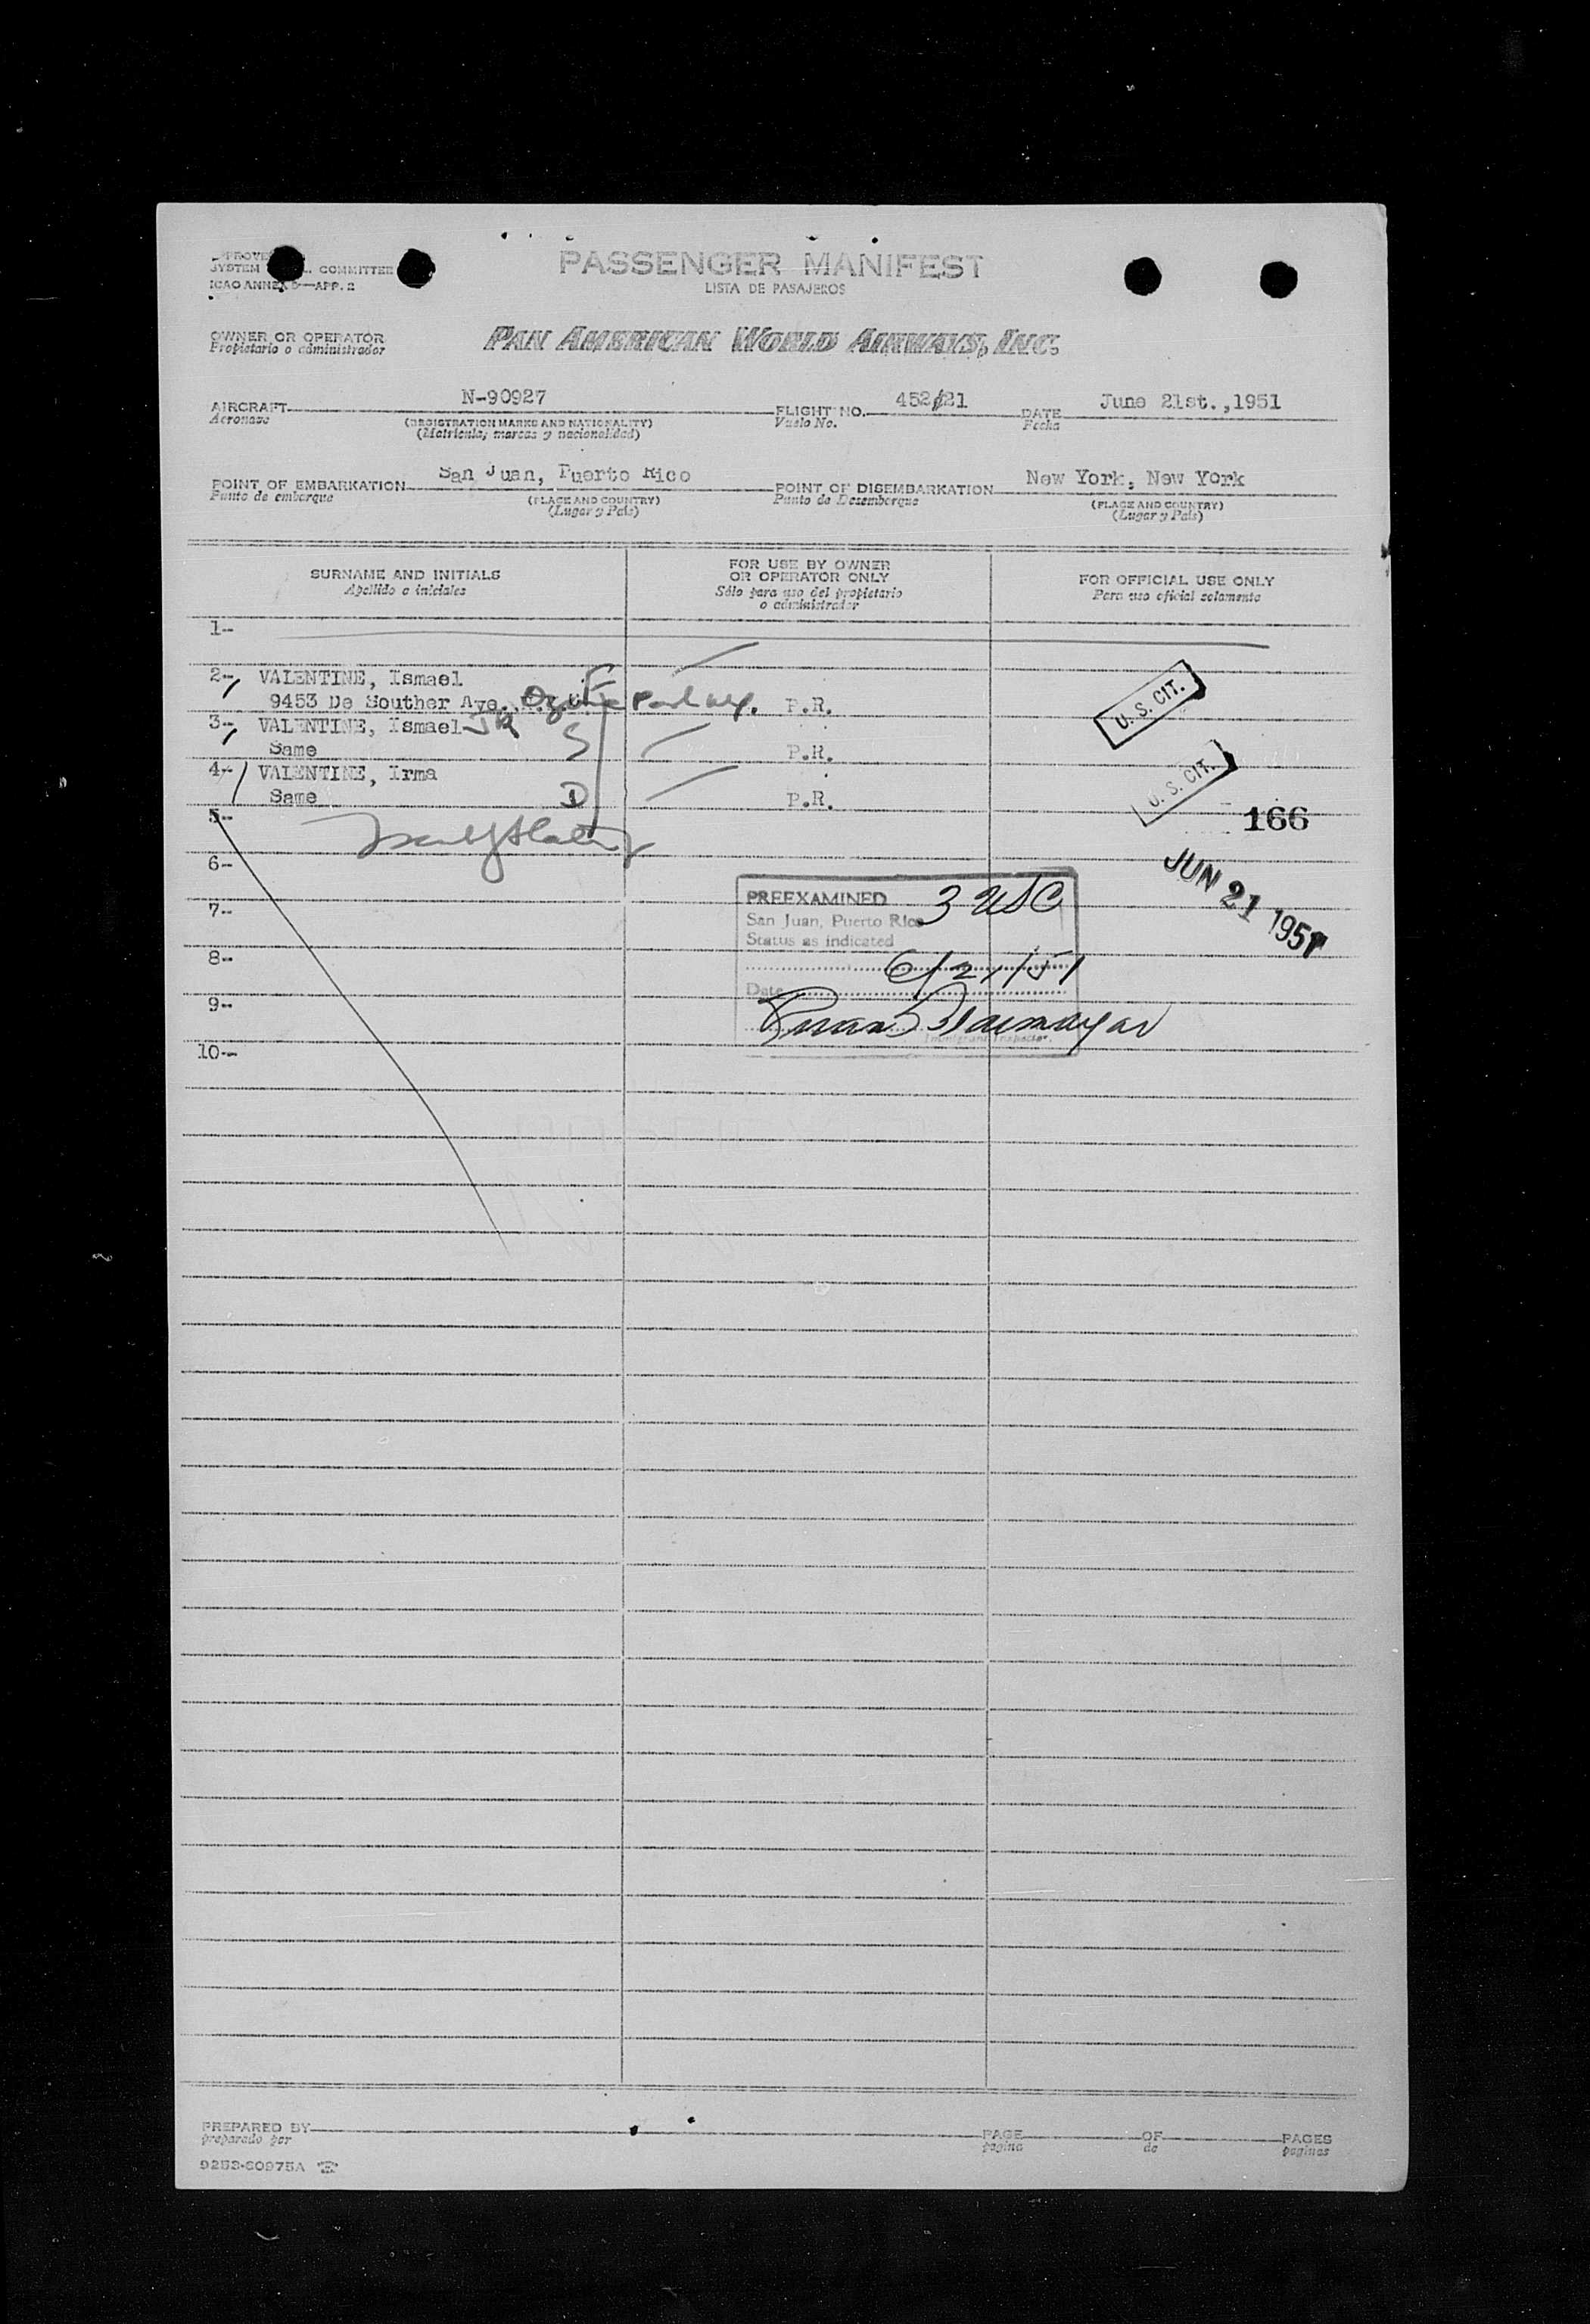 APPROVED
SYSTEM COMMITTEE
ICAO ANNEX 9—APP. 2
PASSENGER MANIFEST
LISTA DE PASAJEROS
OWNER OR OPERATOR
Propietario o administrador
PAN AMERICAN WORLD AIRWAYS, INC.
AIRCRAFT N-90927 FLIGHT NO. 452/21 DATE June 21st.,1951
Aeronave (REGISTRATION MARKS AND NATIONALITY) Vuelo No. Fecha
(Matricula, marcas y nacionalidad)
POINT OF EMBARKATION San Juan, Puerto Rico POINT OF DISEMBARKATION New York, New York
Punto de embarque (PLACE AND COUNTRY) Punto de Desembarque (PLACE AND COUNTRY)
(Lugar y País) (Lugar y País)
SURNAME AND INITIALS FOR USE BY OWNER OR OPERATOR ONLY FOR OFFICIAL USE ONLY
Apellido o iniciales Sólo para uso del propietario o administrador Para uso oficial solamente
1--
2-- VALENTINE, Ismael F
9453 De Souther Ave., Ozone Park P.R. U. S. CIT.
3-- VALENTINE, Ismael JR S
Same P.R.
4-- VALENTINE, Irma
Same D P.R. U. S. CIT.
166
5--
6--
JUN 21 1951
7-- PREEXAMINED 3 USC
San Juan, Puerto Rico
Status as indicated
8-- 6/21/51
Date
9--
Immigrant Inspector.
10--
PREPARED BY PAGE OF PAGES
preparado por pagina de paginas
9253-60975A